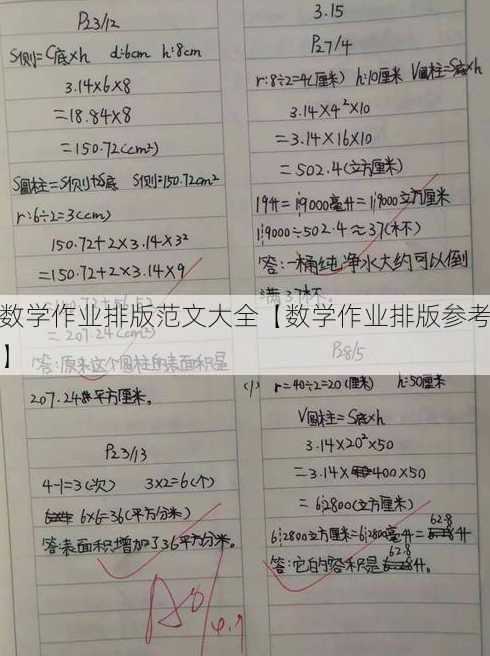 P23/12
S侧=C底×h d:6cm h:8cm
3.14×6×8
=18.84×8
=150.72(cm²)
S圆柱=S侧+S底 S侧=150.72cm²
r:6÷2=3(cm)
150.72+2×3.14×3²
=150.72+2×3.14×9
=150.72+56.52
=207.24(cm²)
答:原来这个圆柱的表面积是
207.24平方厘米。
P23/13
4-1=3(次) 3×2=6(个)
6×6=36(平方分米)
答:表面积增加了36平方分米。
3.15
P27/4
r:8÷2=4(厘米) h:10厘米 V圆柱=S底×h
3.14×4²×10
=3.14×16×10
=502.4(立方厘米)
19升=19000毫升=19000立方厘米
19000÷502.4≈37(杯)
答:一桶纯净水大约可以倒
满37杯。
数学作业排版范文大全【数学作业排版参考
】
P28/5
(1) r=40÷2=20(厘米) h:50厘米
V圆柱=S底×h
3.14×20²×50
=3.14×400×50
=62800(立方厘米)
62800立方厘米=62800毫升=62.8升
答:它的容积是62.8升。